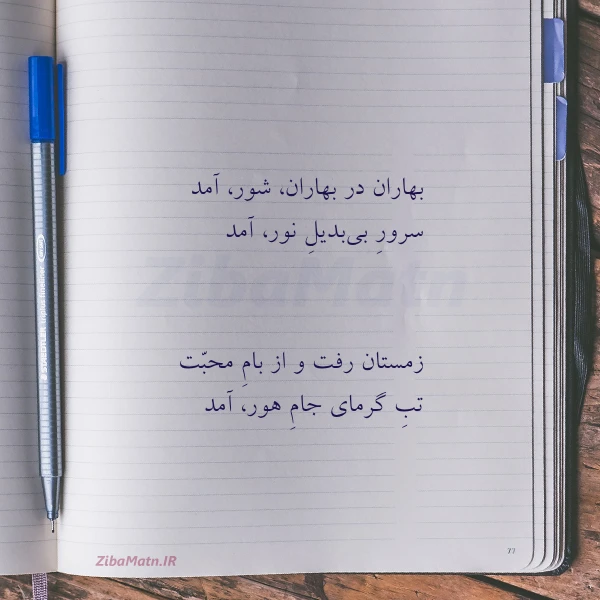 بهاران در بهاران، شور، آمد
سرورِ بی‌بدیلِ نور، آمد
ZibaMatn
زمستان رفت و از بامِ محبّت
تبِ گرمای جامِ هور، آمد
ZibaMatn.IR